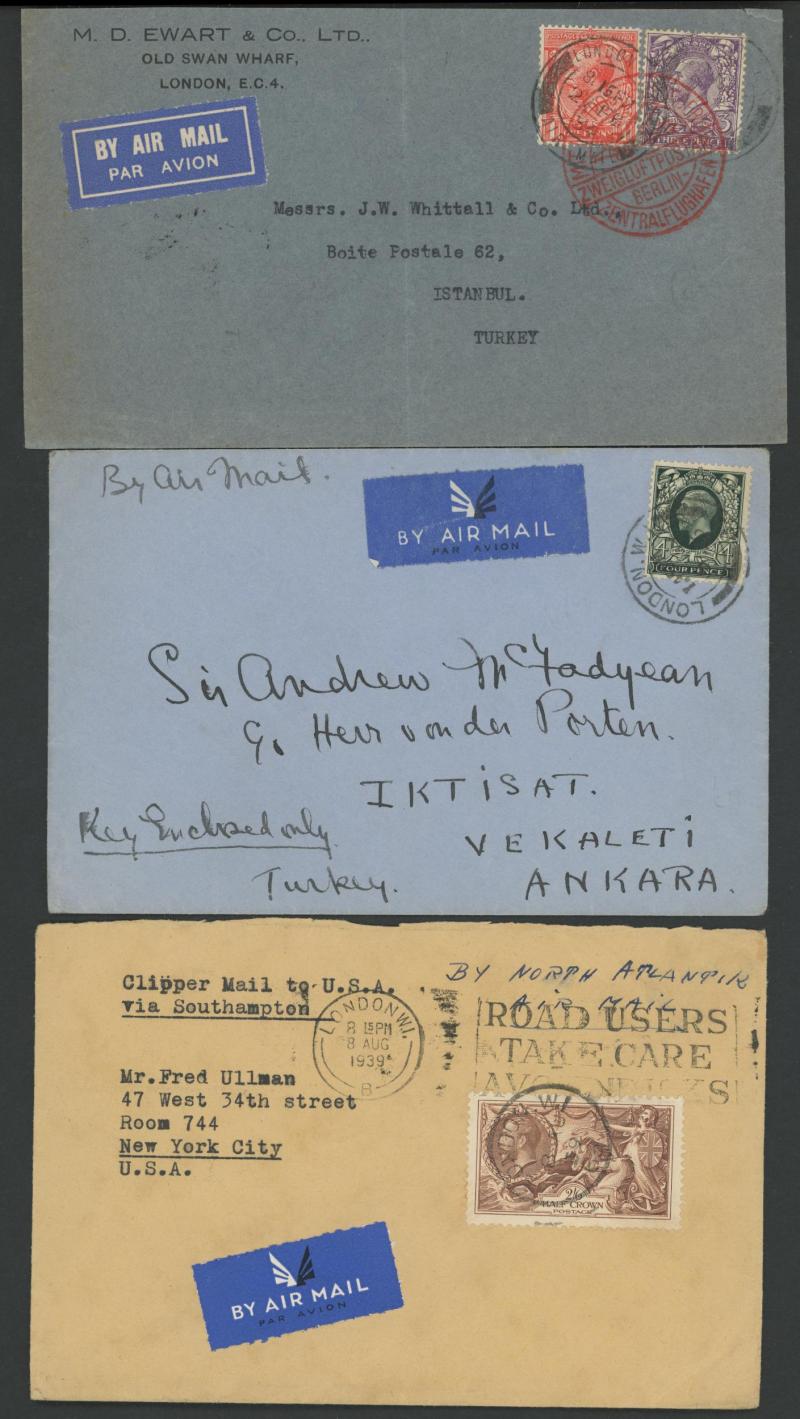 M. D. EWART & CO., LTD.,
OLD SWAN WHARF,
LONDON, E.C.4.
BY AIR MAIL
PAR AVION
LONDON
THREE PENCE
ZWEIGLUFTPOST
BERLIN-
ZENTRALFLUGHAFEN
Messrs. J.W. Whittall & Co. Ltd.,
Boite Postale 62,
ISTANBUL.
TURKEY
By Air Mail.
BY AIR MAIL
PAR AVION
4D 4D
FOUR PENCE
LONDON. W.
Sir Andrew McFadyean
c/o Herr von der Porten.
IKTISAT.
Key Enclosed only
VEKALETI
Turkey.
ANKARA.
Clipper Mail to U.S.A.
via Southampton
BY NORTH ATLANTIK
AIR MAIL
LONDON.W.1.
8 15PM
8 AUG
1939
B
ROAD USERS
TAKE CARE
Mr. Fred Ullman
47 West 34th street
Room 744
New York City
U.S.A.
2/6
HALF CROWN
POSTAGE
BY AIR MAIL
PAR AVION